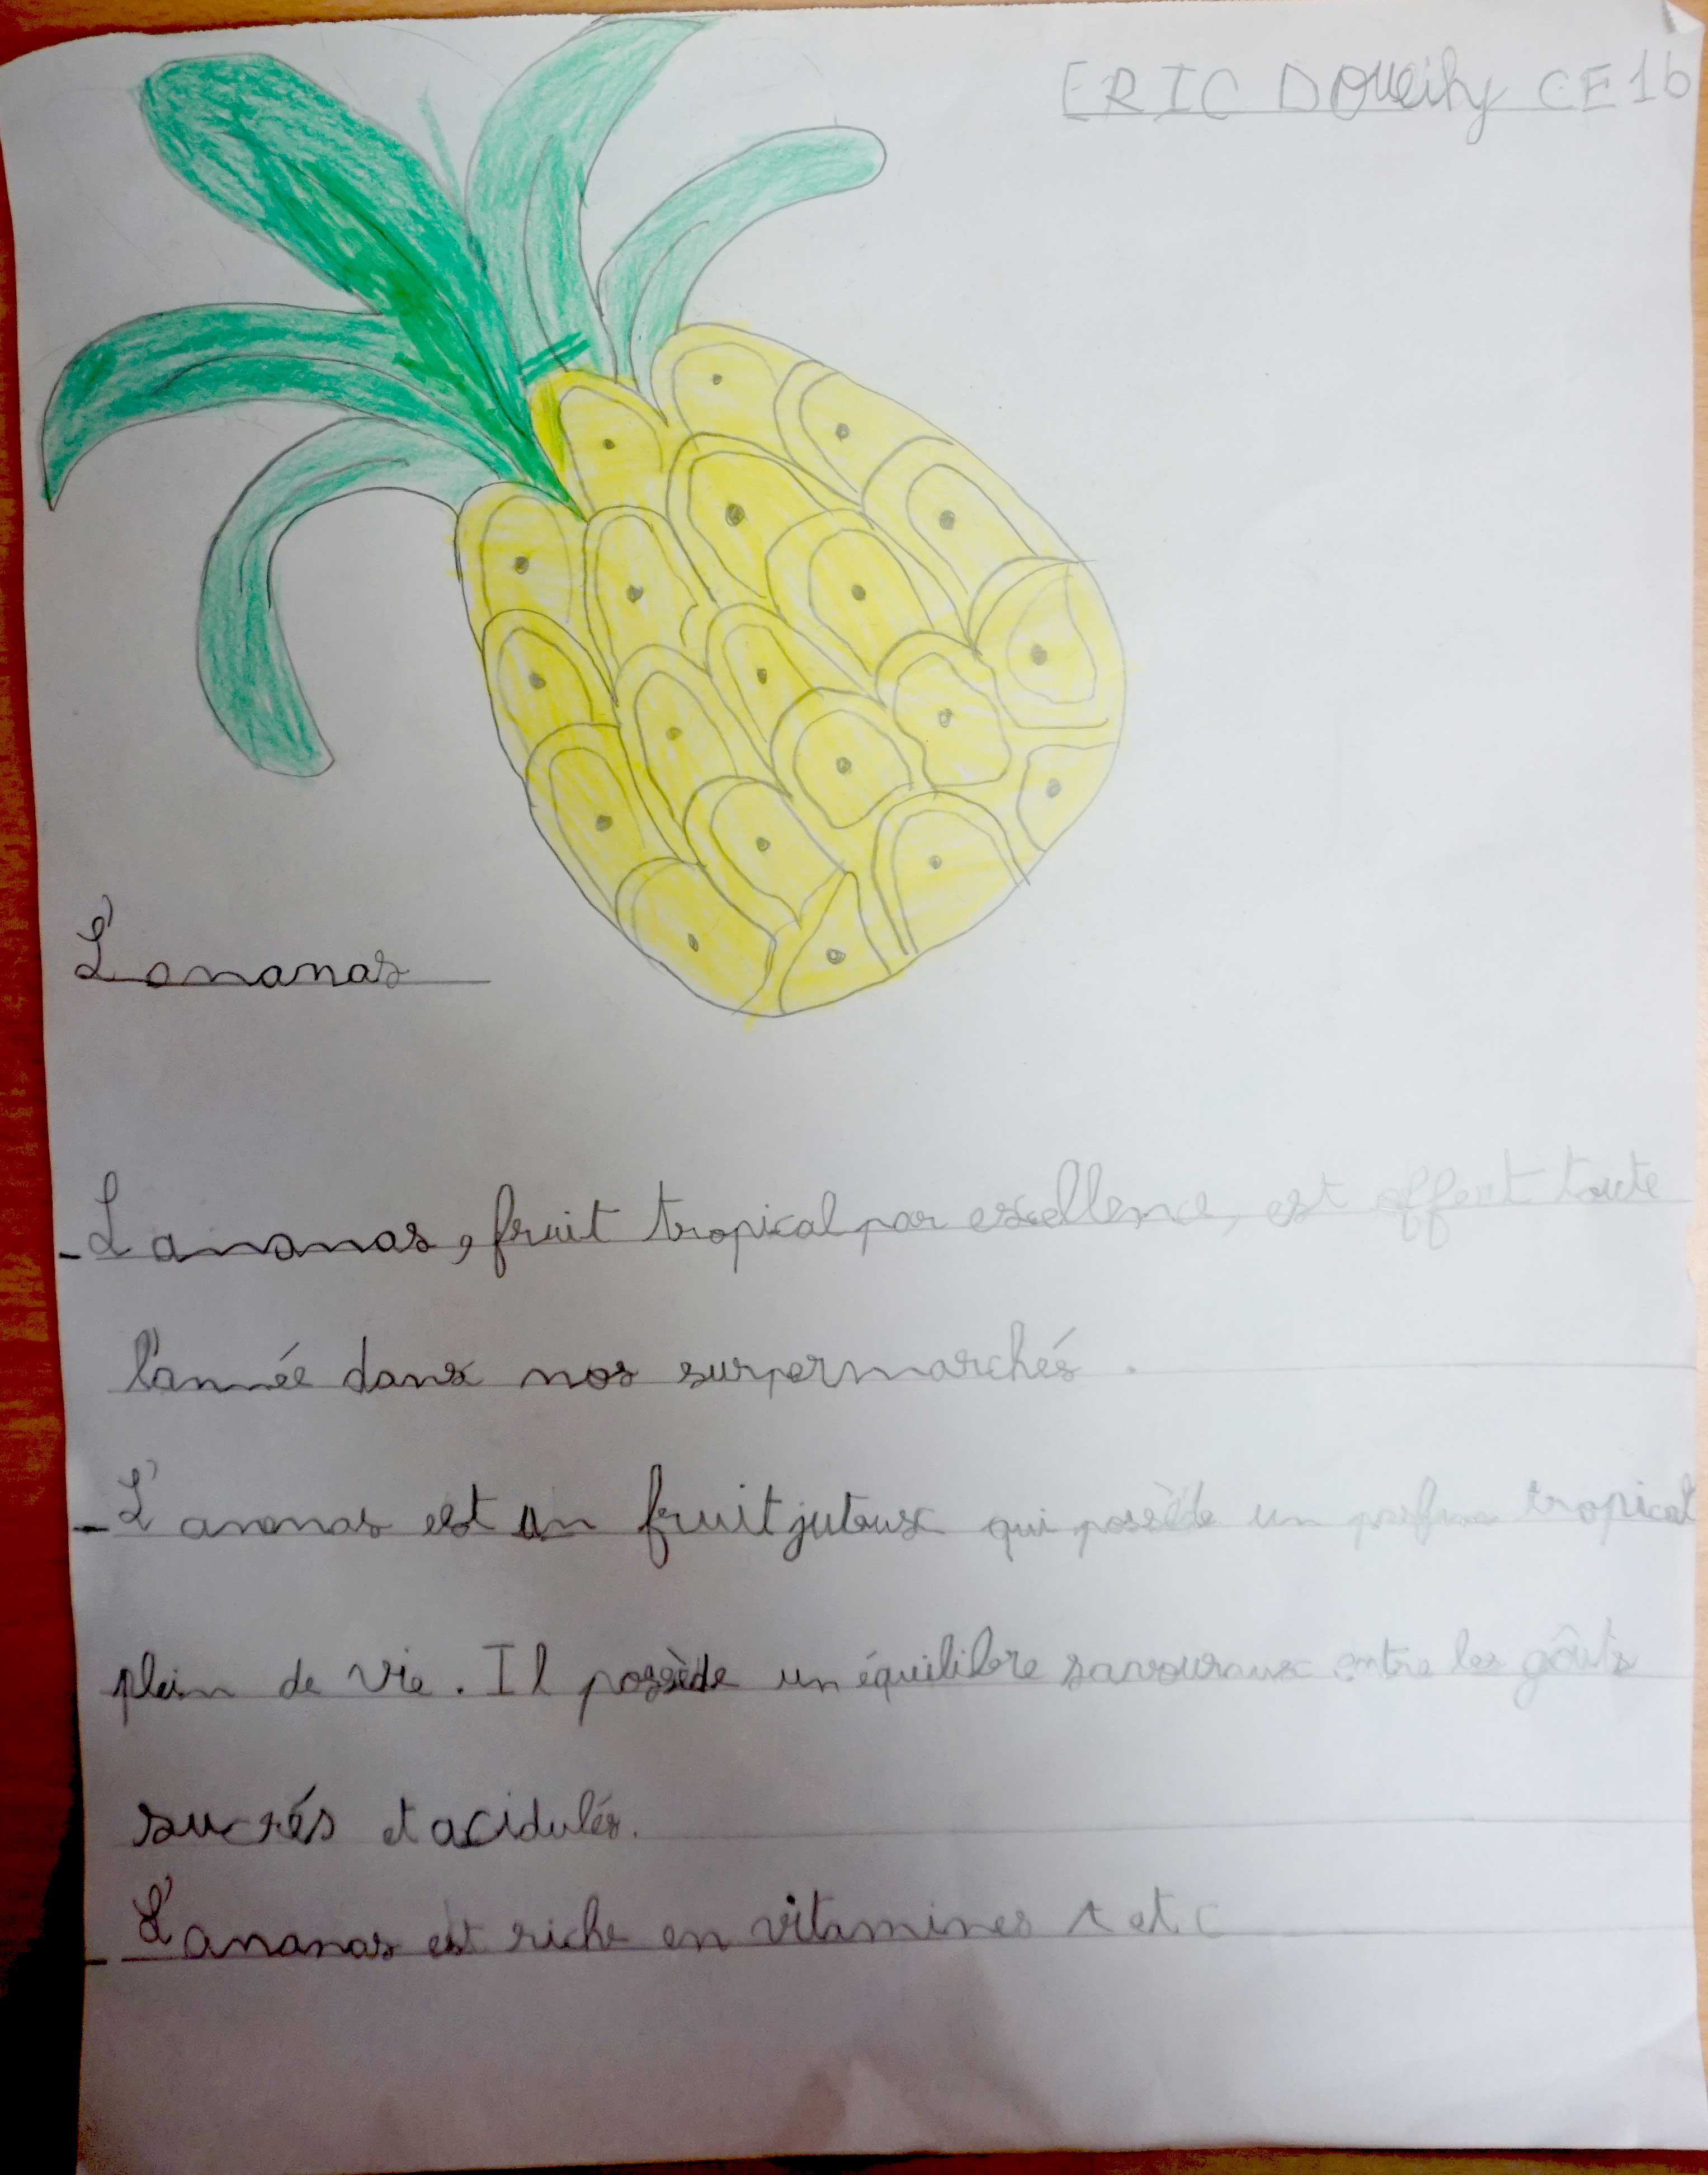 ERIC DOueihy CE1b
L'ananas
- L'ananas, fruit tropical par excellence, est offert toute
l'année dans nos surpermarchés.
- L'ananas est un fruit juteux qui possède un parfum tropical
plein de vie. Il possède un équilibre savoureux entre les goûts
sucrés et acidulés.
- L'ananas est riche en vitamines A et C